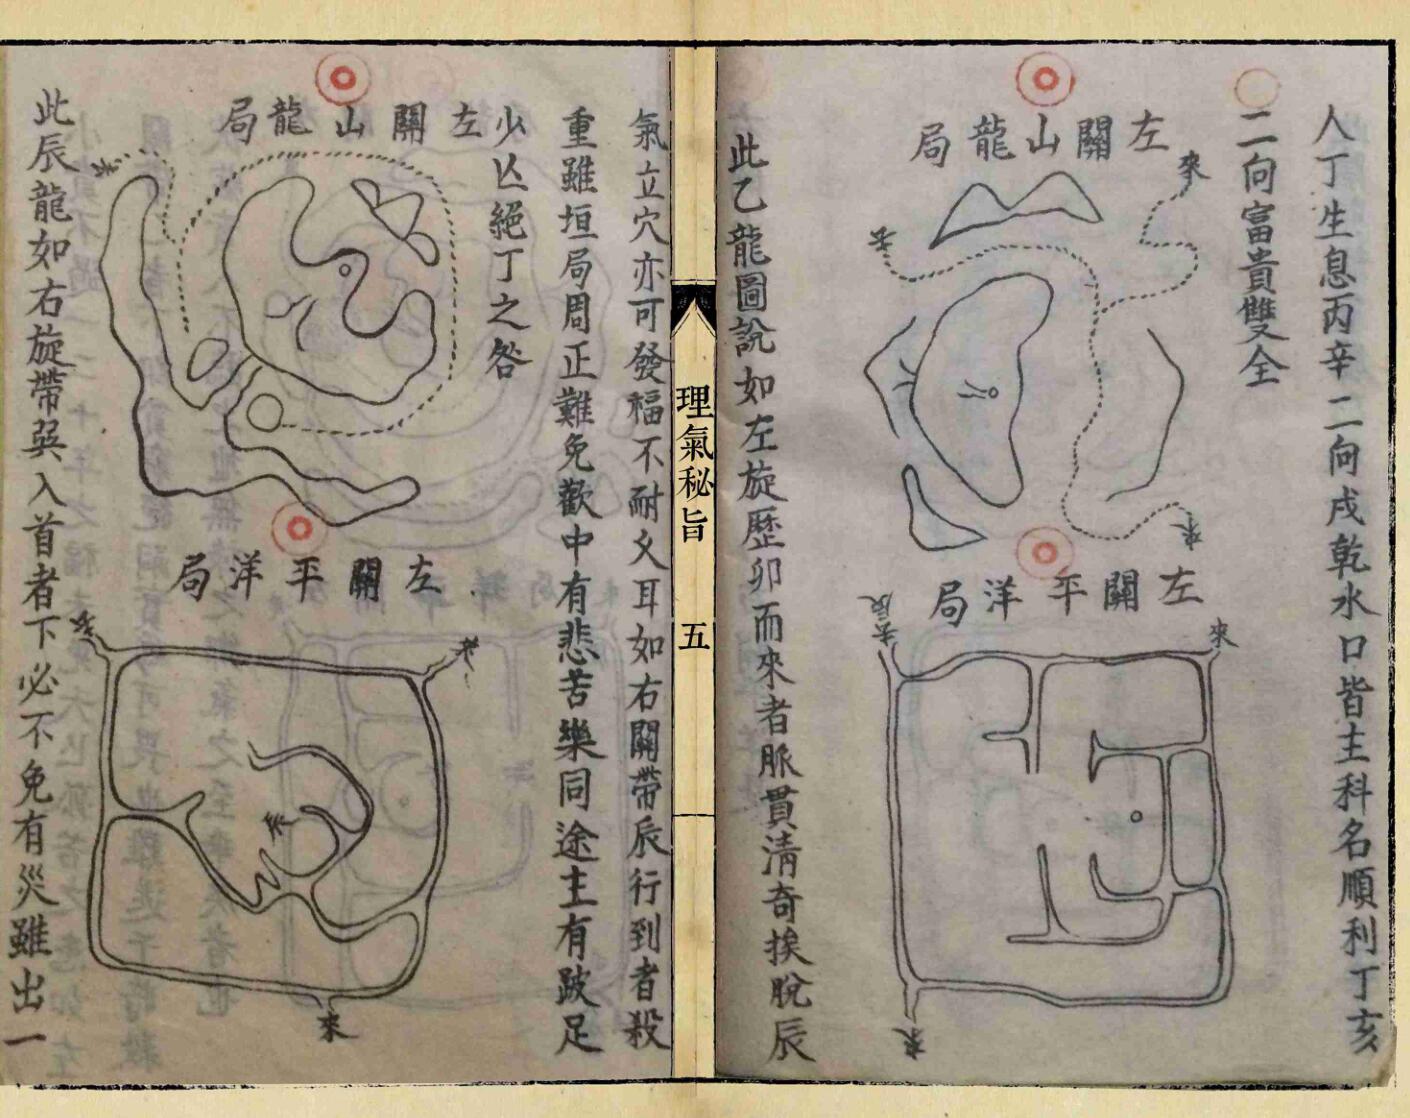 人丁生息丙辛二向戌乾水口皆主科名順利丁亥
二向富貴雙全
左關山龍局
來
去
來
左關平洋局
來
去辰
來
此乙龍圖說如左旋歷卯而來者脈貫清奇挨脫辰
理氣秘旨
五
氣立穴亦可發福不耐久耳如右關帶辰行到者殺
重雖垣局周正難免歡中有悲苦樂同途主有跛足
少亾絕丁之咎
左關山龍局
左關平洋局
來
此辰龍如右旋帶巽入首者下必不免有災雖出一